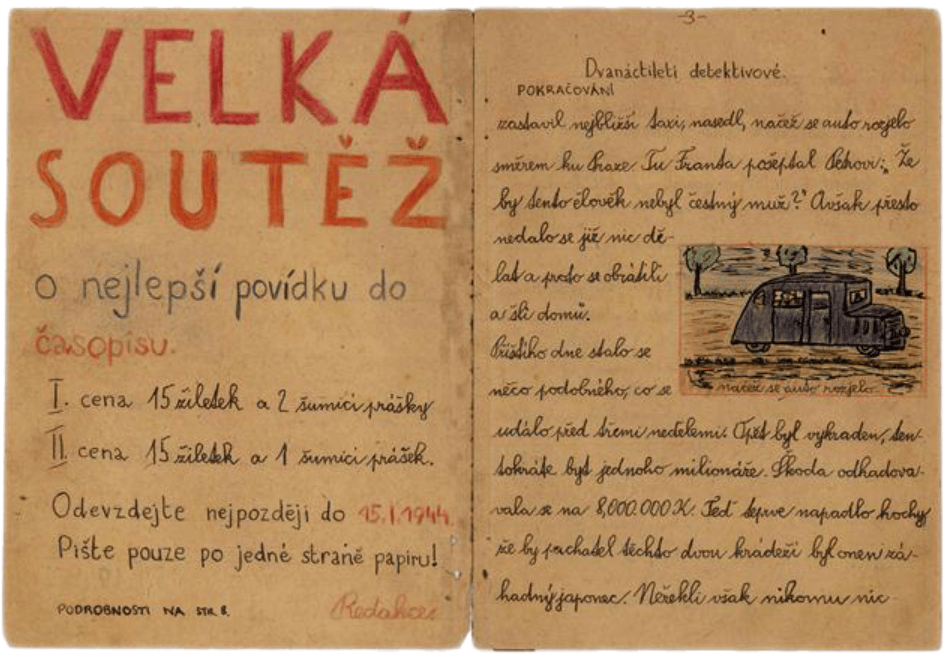 VELKÁ
SOUTĚŽ
o nejlepší povídku do
časopisu.
I. cena 15 žiletek a 2 šumicí prášky
II. cena 15 žiletek a 1 šumicí prášek.
Odevzdejte nejpozději do 15.I.1944.
Pište pouze po jedné straně papíru!
PODROBNOSTI NA STR. 8.
Redakce
-3-
Dvanáctiletí detektivové.
POKRAČOVÁNÍ
zastavil nejbližší taxi, nasedl, načež se auto rozjelo
směrem ku Praze. Tu Franta pošeptal Petrovi: „Že
by tento člověk nebyl čestný muž?" Avšak přesto
nedalo se již nic dě-
lat a proto se obrátili
a šli domů.
Příštího dne stalo se
něco podobného, co se
načež se auto rozjelo.
událo před třemi nedělemi. Opět byl vykraden, ten-
tokráte byt jednoho milionáře. Škoda odhadova-
vala se na 8,000.000 K. Teď teprve napadlo hochy
že by pachatel těchto dvou krádeží byl onen zá-
hadný japonec. Neřekli však nikomu nic